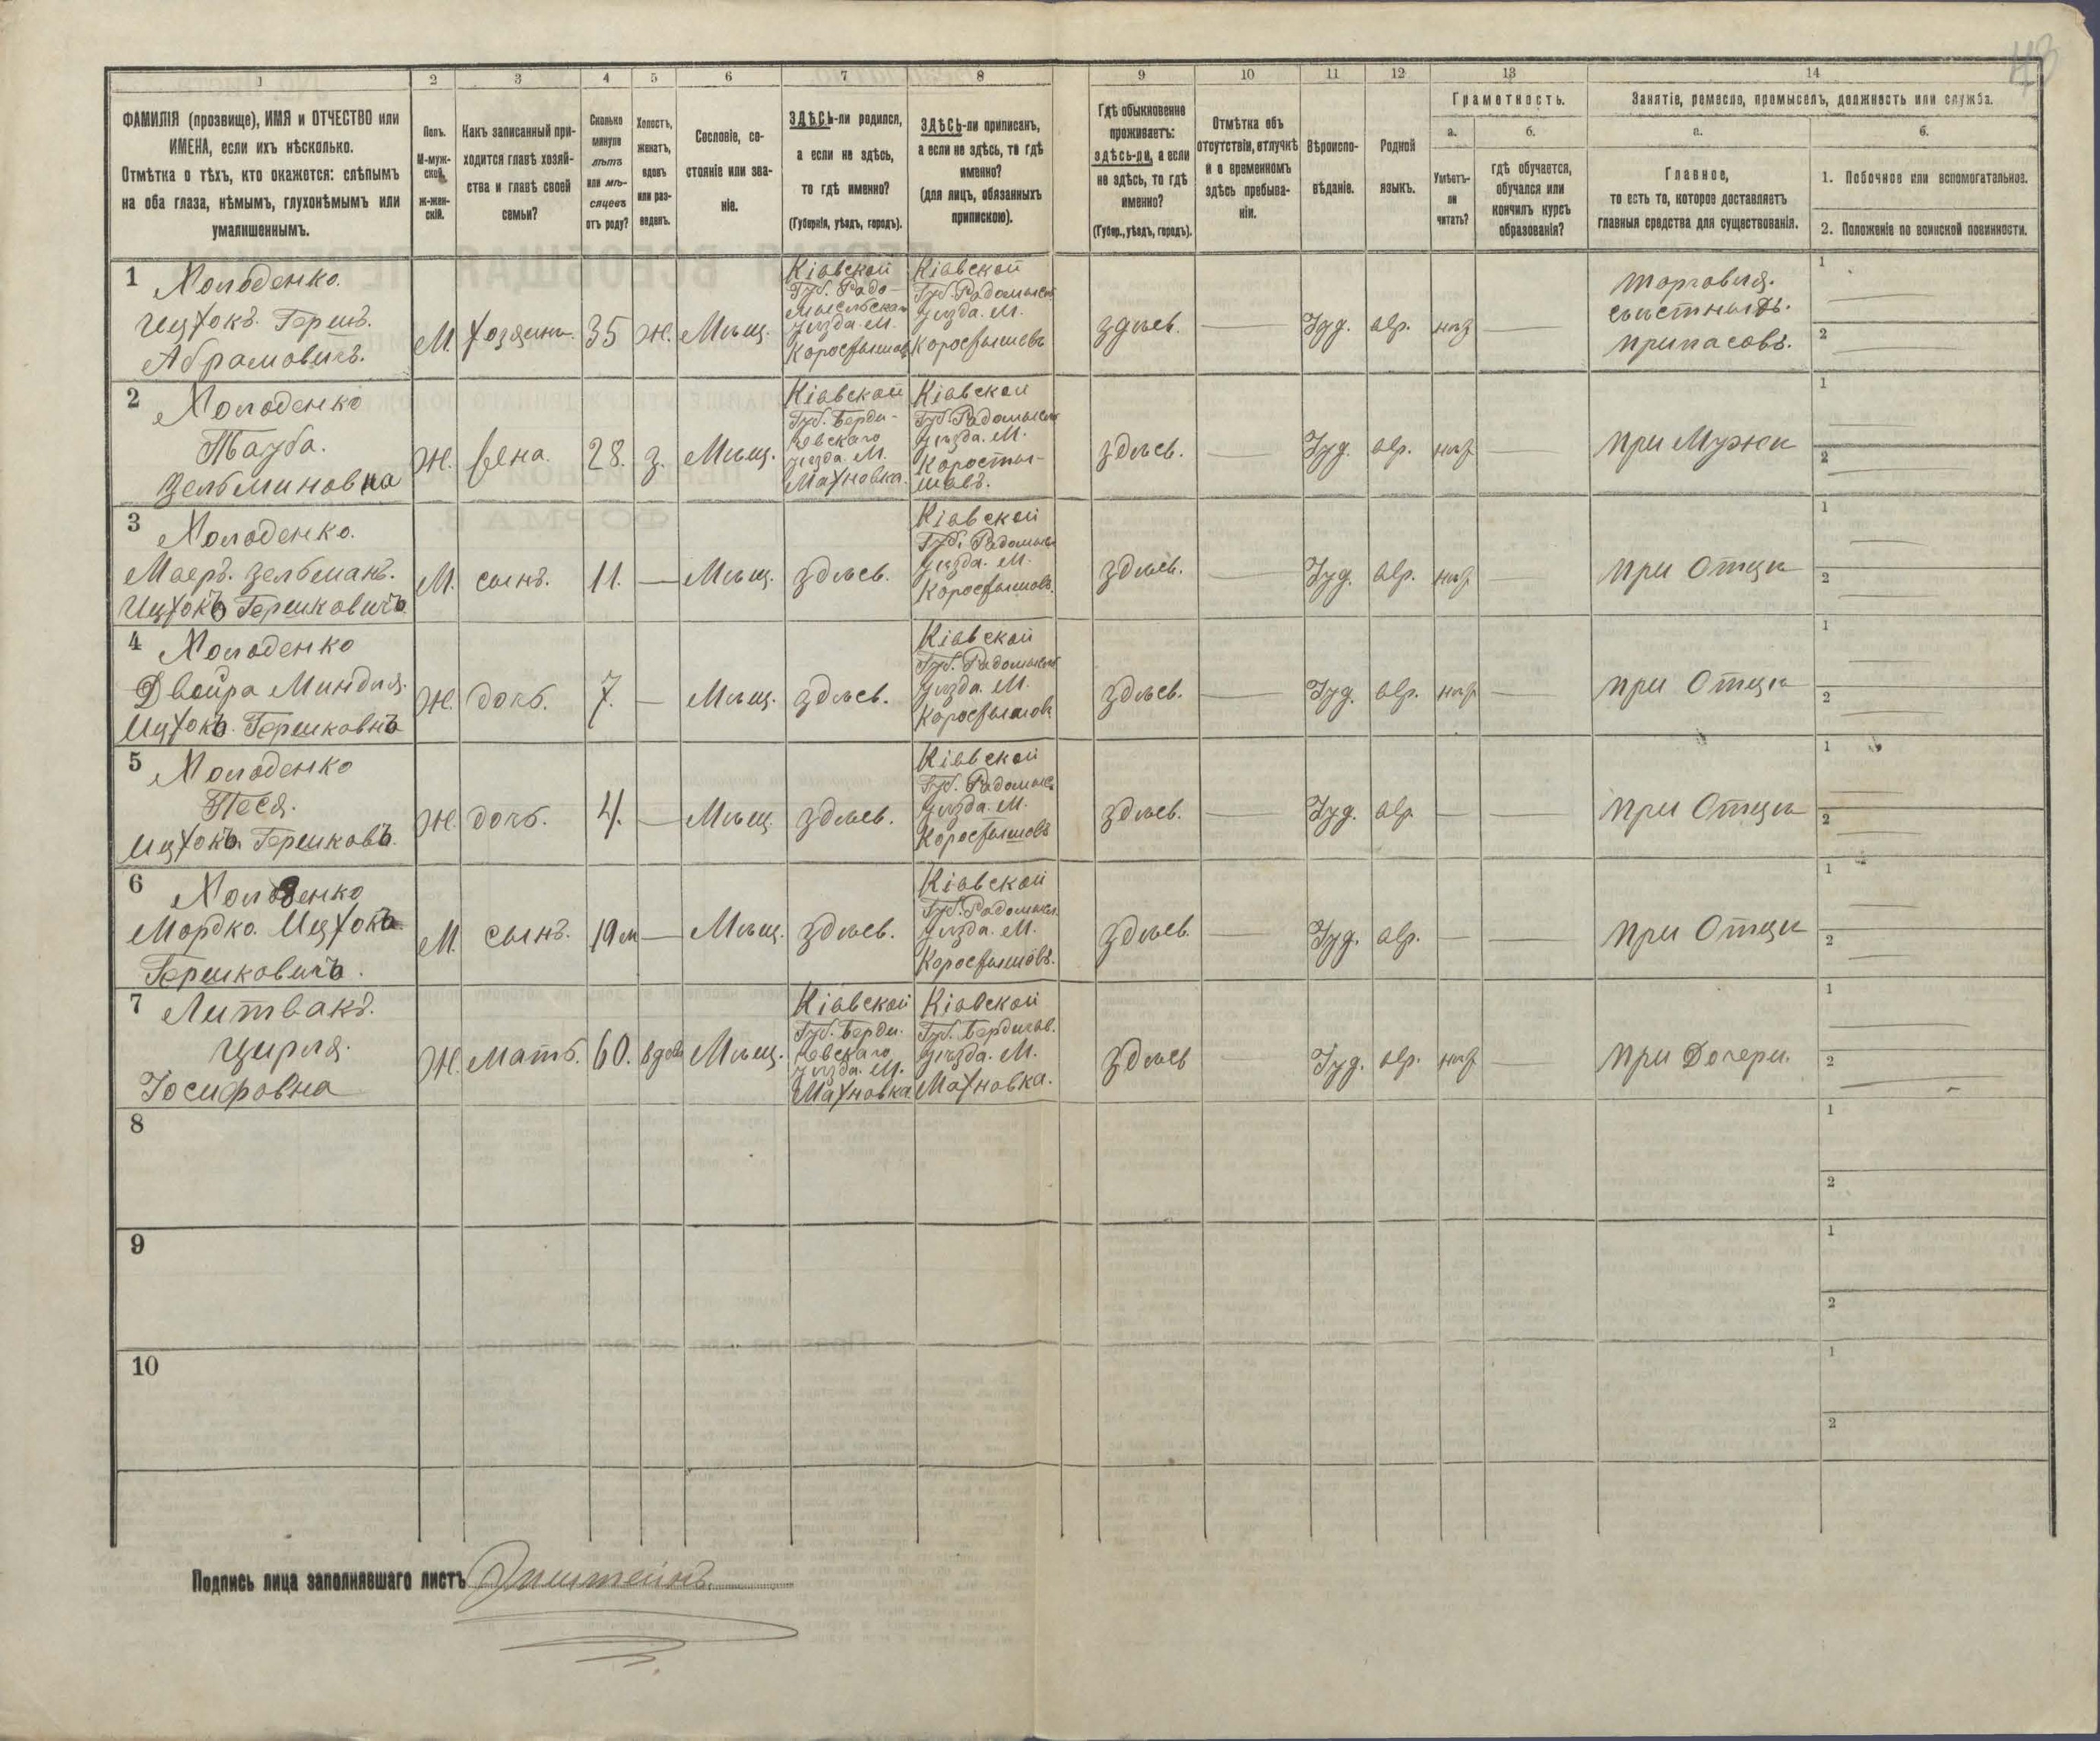 48
1 2 3 4 5 6 7 8 9 10 11 12 13 14
ФАМИЛІЯ (прозвище), ИМЯ и ОТЧЕСТВО или
ИМЕНА, если ихъ нѣсколько.
Отмѣтка о тѣхъ, кто окажется: слѣпымъ
на оба глаза, нѣмымъ, глухонѣмымъ или
умалишеннымъ.
Полъ.
М-муж-
ской.
ж-жен-
скій.
Какъ записанный при-
ходится главѣ хозяй-
ства и главѣ своей
семьи?
Сколько
минуло
лѣтъ
или мѣ-
сяцевъ
отъ роду?
Холостъ,
женатъ,
вдовъ
или раз-
веденъ.
Сословіе, со-
стояніе или зва-
ніе.
ЗДѢСЬ-ли родился,
а если не здѣсь,
то гдѣ именно?
(Губернія, уѣздъ, городъ).
ЗДѢСЬ-ли приписанъ,
а если не здѣсь, то гдѣ
именно?
(для лицъ, обязанныхъ
припискою).
Гдѣ обыкновенно
проживаетъ:
здѣсь-ли, а если
не здѣсь, то гдѣ
именно?
(Губер., уѣздъ, городъ).
Отмѣтка объ
отсутствіи, отлучкѣ
и о временномъ
здѣсь пребыва-
ніи.
Вѣроиспо-
вѣданіе.
Родной
языкъ.
Грамотность.
а.
Умѣетъ-
ли
читать?
б.
гдѣ обучается,
обучался или
кончилъ курсъ
образованія?
Занятіе, ремесло, промыселъ, должность или служба.
а.
Главное,
то есть то, которое доставляетъ
главныя средства для существованія.
б.
1. Побочное или вспомогательное.
2. Положеніе по воинской повинности.
1 Холоденко.
Ицхокъ Гершъ.
Абрамовичъ.
М. хозяинъ. 35 Ж. Мѣщ.
Кіевской
Губ. Радо-
мысльскаго
уѣзда. М.
Коростышевъ
Кіевской
Губ. Радомысл
уѣзда. М.
Коростышевъ
здѣсь. — Іуд. евр. нѣт —
Торговля.
съѣстныхъ.
припасовъ.
1
2
2 Холоденко
Тауба.
Зельмановна
Ж. жена. 28. з. Мѣщ.
Кіевской
Губ. Берди-
чевскаго
уѣзда. М.
Махновка.
Кіевской
Губ. Радомысл
уѣзда. М.
Коросты-
шевъ.
здѣсь. — Іуд. евр. нѣт —
при Мужѣ
1
2
3 Холоденко.
Маеръ. Зельманъ.
Ицхокъ Гершковичъ
М. сынъ. 11. — Мѣщ. здѣсь.
Кіевской
Губ. Радомысл
уѣзда. М.
Коростышевъ.
здѣсь. — Іуд. евр. нѣт —
при Отцѣ
1
2
4 Холоденко
Двойра Миндля.
Ицхокъ. Гершковнъ
Ж. дочь. 7. — Мѣщ. здѣсь.
Кіевской
Губ. Радомысл
уѣзда. М.
Коростышовъ
здѣсь. — Іуд. евр. нѣт —
при Отцѣ
1
2
5 Холоденко
Песя.
Ицхокъ Гершковъ.
Ж. дочь. 4. — Мѣщ. здѣсь.
Кіевской
Губ. Радомысл
уѣзда. М.
Коростышевъ
здѣсь. — Іуд. евр. — —
при Отцѣ
1
2
6 Холоденко
Мордко. Ицхокъ
Гершковичъ.
М. сынъ. 19м — Мѣщ. здѣсь.
Кіевской
Губ. Радомысл.
уѣзда. М.
Коростышовъ.
здѣсь. — Іуд. евр. — —
при Отцѣ
1
2
7 Литвакъ.
Цирля.
Іосифовна
Ж. мать. 60. вдова Мѣщ.
Кіевской
Губ. Берди-
чевскаго
уѣзда. М.
Махновка.
Кіевской
Губ. Бердичев.
уѣзда. М.
Махновка.
здѣсь — Іуд. евр. нѣт —
при Дочери.
1
2
8
1
2
9
1
2
10
1
2
Подпись лица заполнявшаго листъ Эпштейнъ.